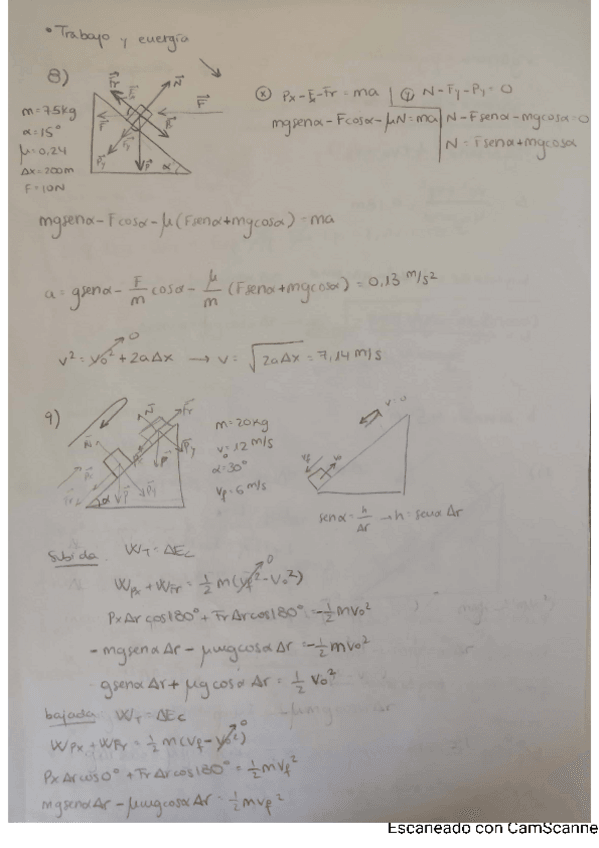 • Trabajo y energía
8)
m=75kg
α=15°
μ=0,24
Δx=200m
F=10N
N
F
Fy
P
α
ⓧ Px-Fx-Fr=ma | ⓨ N-Fy-Py=0
mgsenα-Fcosα-μN=ma | N-Fsenα-mgcosα=0
N=Fsenα+mgcosα
mgsenα-Fcosα-μ(Fsenα+mgcosα)=ma
a=gsenα-F/m cosα-μ/m (Fsenα+mgcosα)=0,13 m/s²
v²=v₀²+2aΔx → v=√2aΔx=7,14 m/s
0
9)
N
Fr
P
Py
α
m=20kg
v=12 m/s
α=30°
vf=6 m/s
v=0
vf
v₀
senα=h/Δr → h=senα Δr
Subida W_T=ΔEc
W_Px+W_Fr=1/2 m(vf²-v₀²)
0
PxΔrcos180°+FrΔrcos180°=-1/2 mv₀²
-mgsenαΔr-μmgcosαΔr=-1/2 mv₀²
gsenαΔr+μgcosαΔr=1/2 v₀²
bajada W_T=ΔEc
W_Px+W_Fr=1/2 m(vf-v₀²)
0
PxΔrcos0°+FrΔrcos180°=1/2 mvf²
mgsenαΔr-μmgcosαΔr=1/2 mvf²
Escaneado con CamScanne